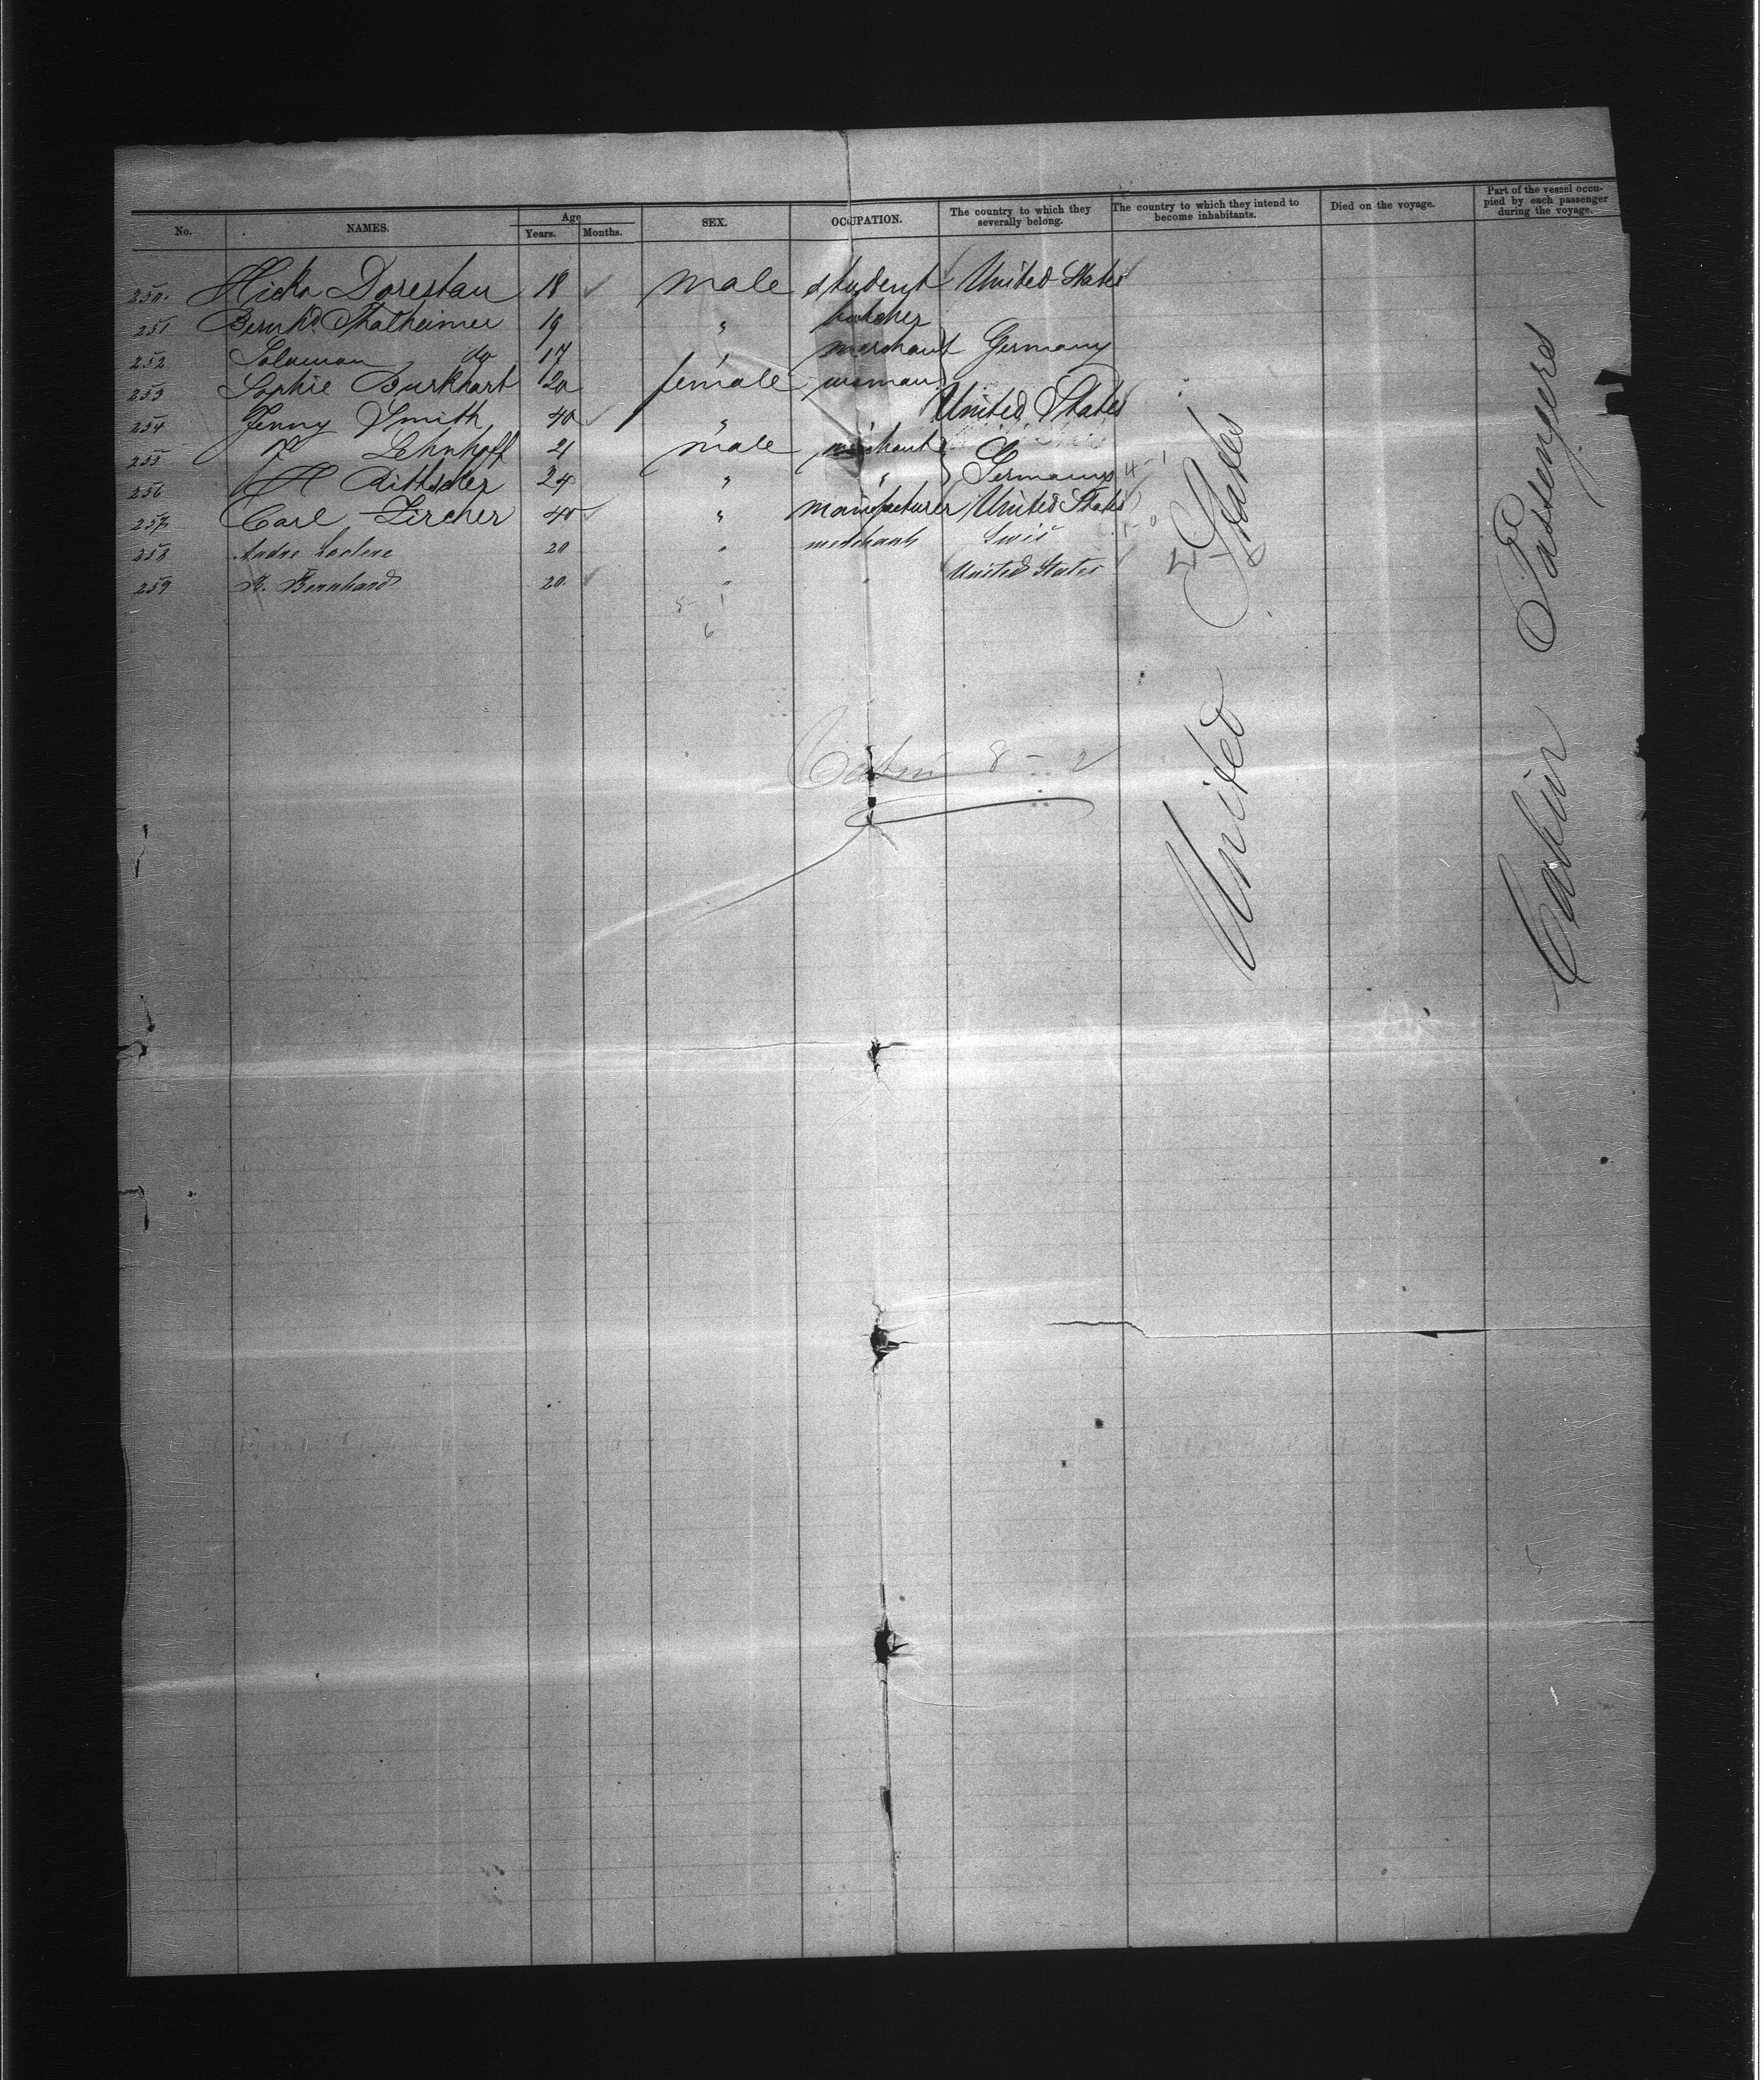 No. NAMES. Age Years. Months. SEX. OCCUPATION. The country to which they severally belong. The country to which they intend to become inhabitants. Died on the voyage. Part of the vessel occupied by each passenger during the voyage.
250. Dorestau 18 male student United States
251 Bernhd. Thalheimer 19 " butcher
252 Salomon do 17 " merchant Germany
253 Sophie Burkhart 20 female woman
254 Jenny Smith 40 " " United States
255 Lehnhoff 21 male merchant
256 H 24 " " Germany 4-1
257 Carl Zircher 40 " manufacturer United States
258 Andre 20 " merchant Swis 1-0
259 B. Bernhard 20 " " United States
5- 1
6
Cabin 8-2
United States
Cabin Passengers